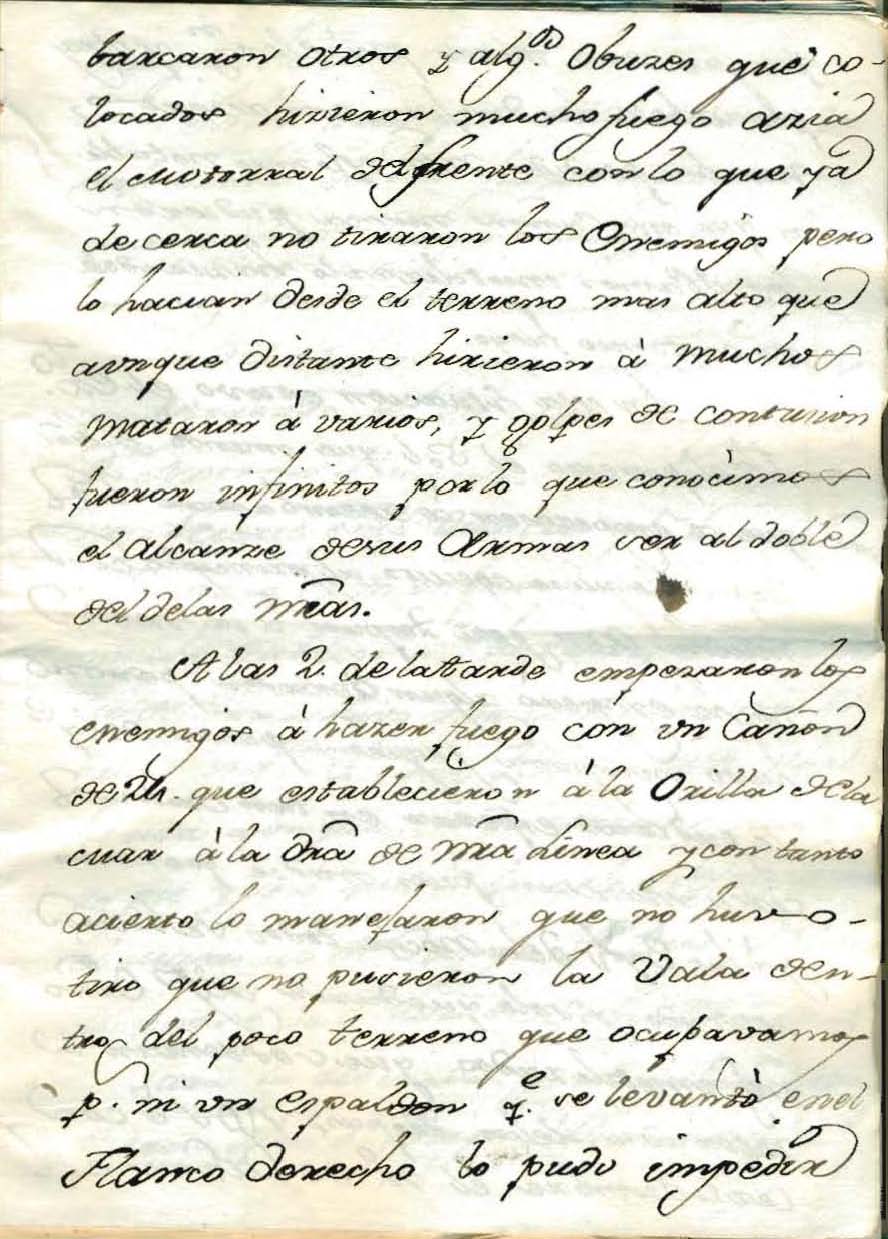 barcaron otros y algᵒˢ. Obuzes que co-
locados hizieron mucho fuego azia
el Motorral del frente con lo que ya
de cerca no tiraron los Enemigos pero
lo hacian desde el terreno mas alto que
aunque distante hirieron à muchos
mataron à varios, y golpes de contusion
fueron infinitos por lo que conocimos
el alcanze de sus Armas ser al doble
del delas nr̃as.
A las 2. de la tarde empezaron los
enemigos à hazer fuego con un Cañon
de 24. que establecieron à la Orilla de la
mar à la dr̃a de nr̃a Linea y con tanto
acierto lo manejaron que no huvo-
tiro que no pusieron la Vala den-
tro del poco terreno que ocupavamos
p.ʳ ni un espaldon q.ᵉ se levantò en el
Flanco derecho lo pudo impedir